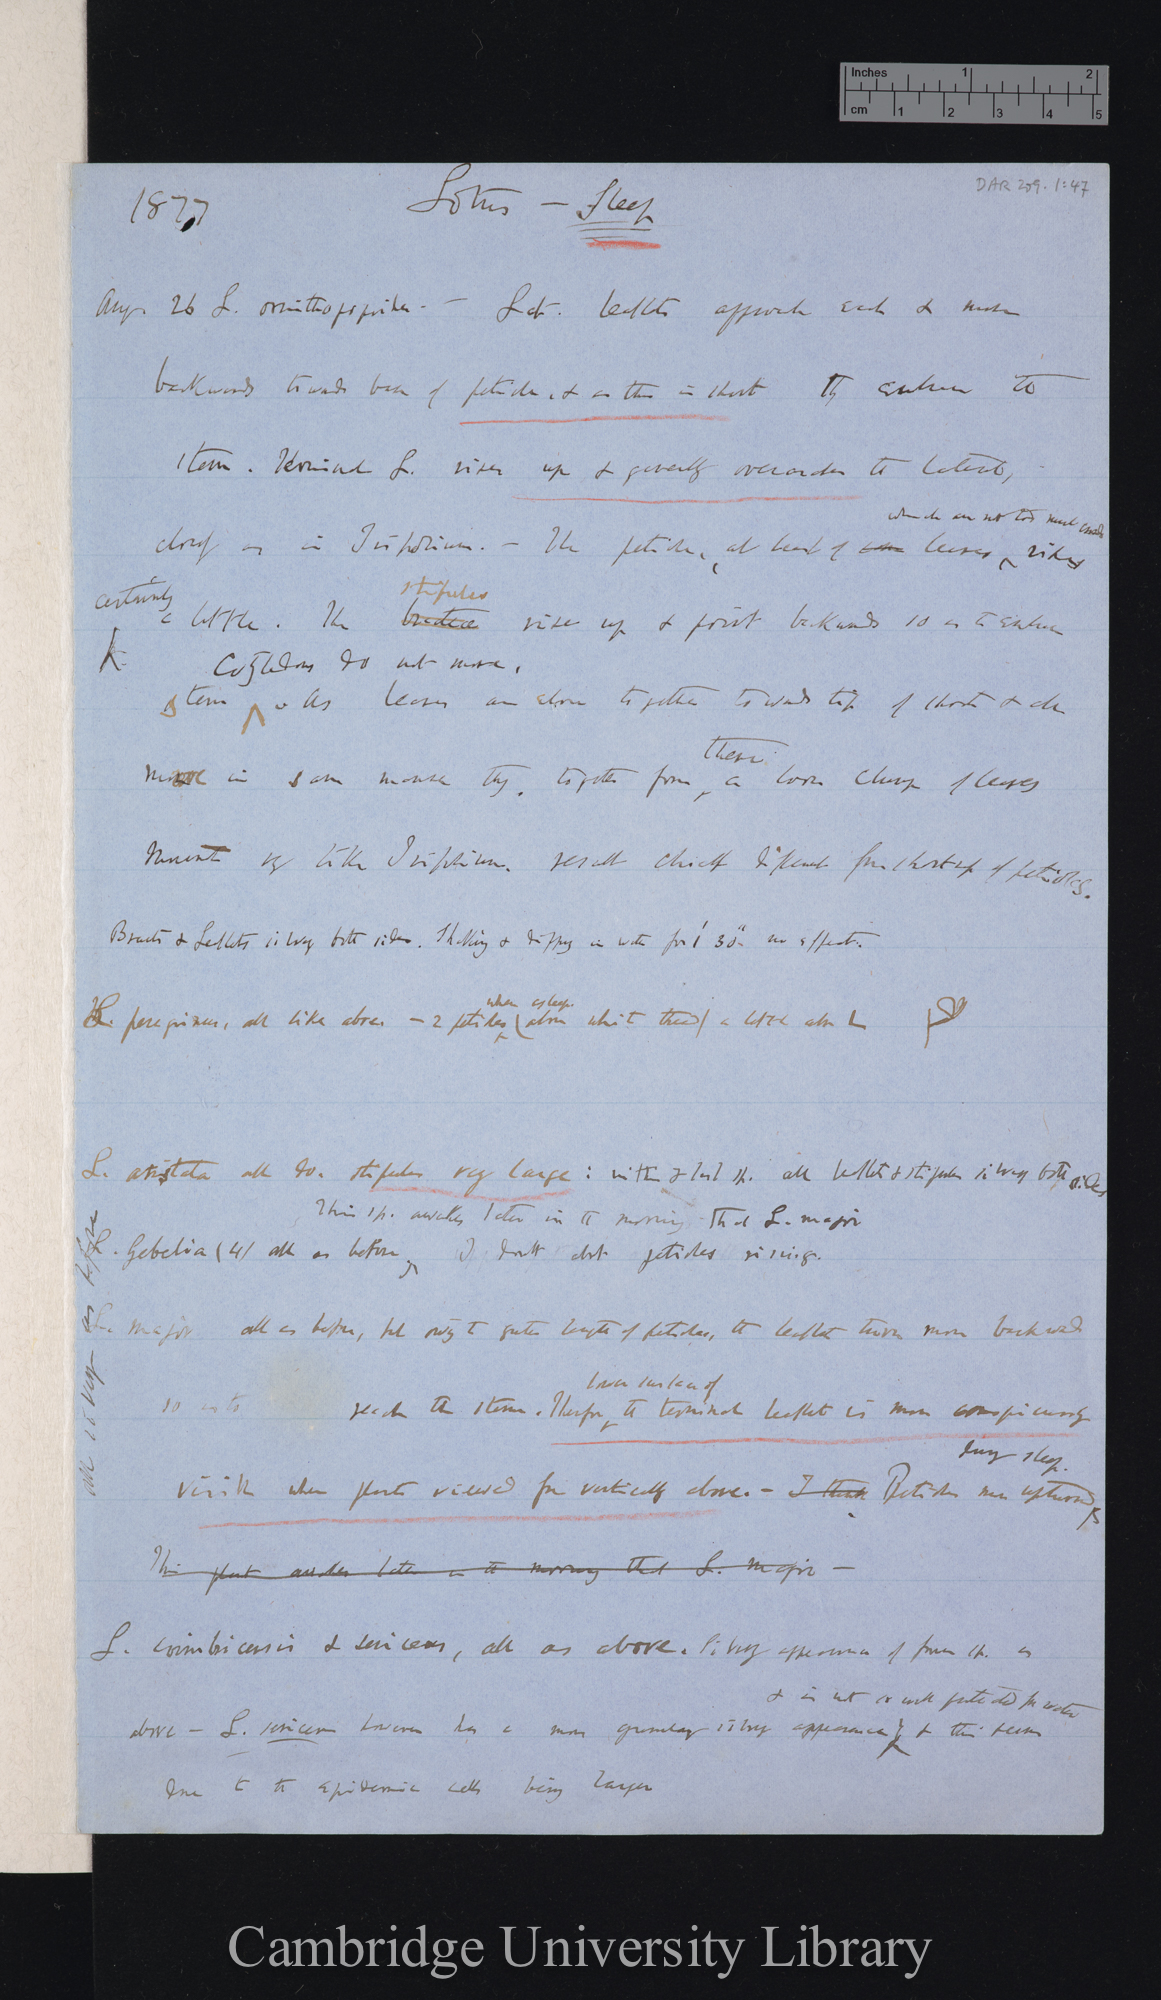 Inches 1 2
cm 1 2 3 4 5
DAR 209.1:47
1877
Lotus — Sleep
Aug. 26 L. ornithopopoides — Lat. leaflets approach each & move
backwards towards base of petiole, & as this is short they embrace to
stem. Terminal L. rises up & generally overarches the laterals,
which are not too much
closely as in Trifolium. — The petioles, at least of some leaves rises
certainly
stipules
a little. The bracteae rise up & point backwards so as to embrace
Cotyledons do not move.
stem. As leaves are close together towards tip of shoots & all
these
move in same manner they, together form a loose clump of leaves
Movement very like Trifolium. result chiefly different from shortness of petioles.
Bracts & Leaflets silvery both sides. Shaking & dipping in water for 1' 30" no effect.
when asleep
L. peregrinus, all like above — 2 petioles (above white thread) a little above L
L. aristata all do. stipules very large: in this & last sp. all leaflets & stipules silvery both sides
This sp. awakes later in the morning than L. major
L. Gebelia (4) all as before, I doubt about petioles rising.
all is very as before
L. major all as before, but owing to greater length of petioles, the leaflets turn more backward
lower surface of
so as to reach the stem. Therefore the terminal leaflet is more conspicuously
during sleep.
visible when plant viewed from vertically above. — I think Petioles move upwards
This plant awakes later in the morning than L. major —
L. coimbricensis & sericeus, all as above. Silvery appearance of former sp. as
& is not so well protected from water
above — L. sericeus however has a more generally silvery appearance & this seems
due to the epidermic cells being larger
Cambridge University Library